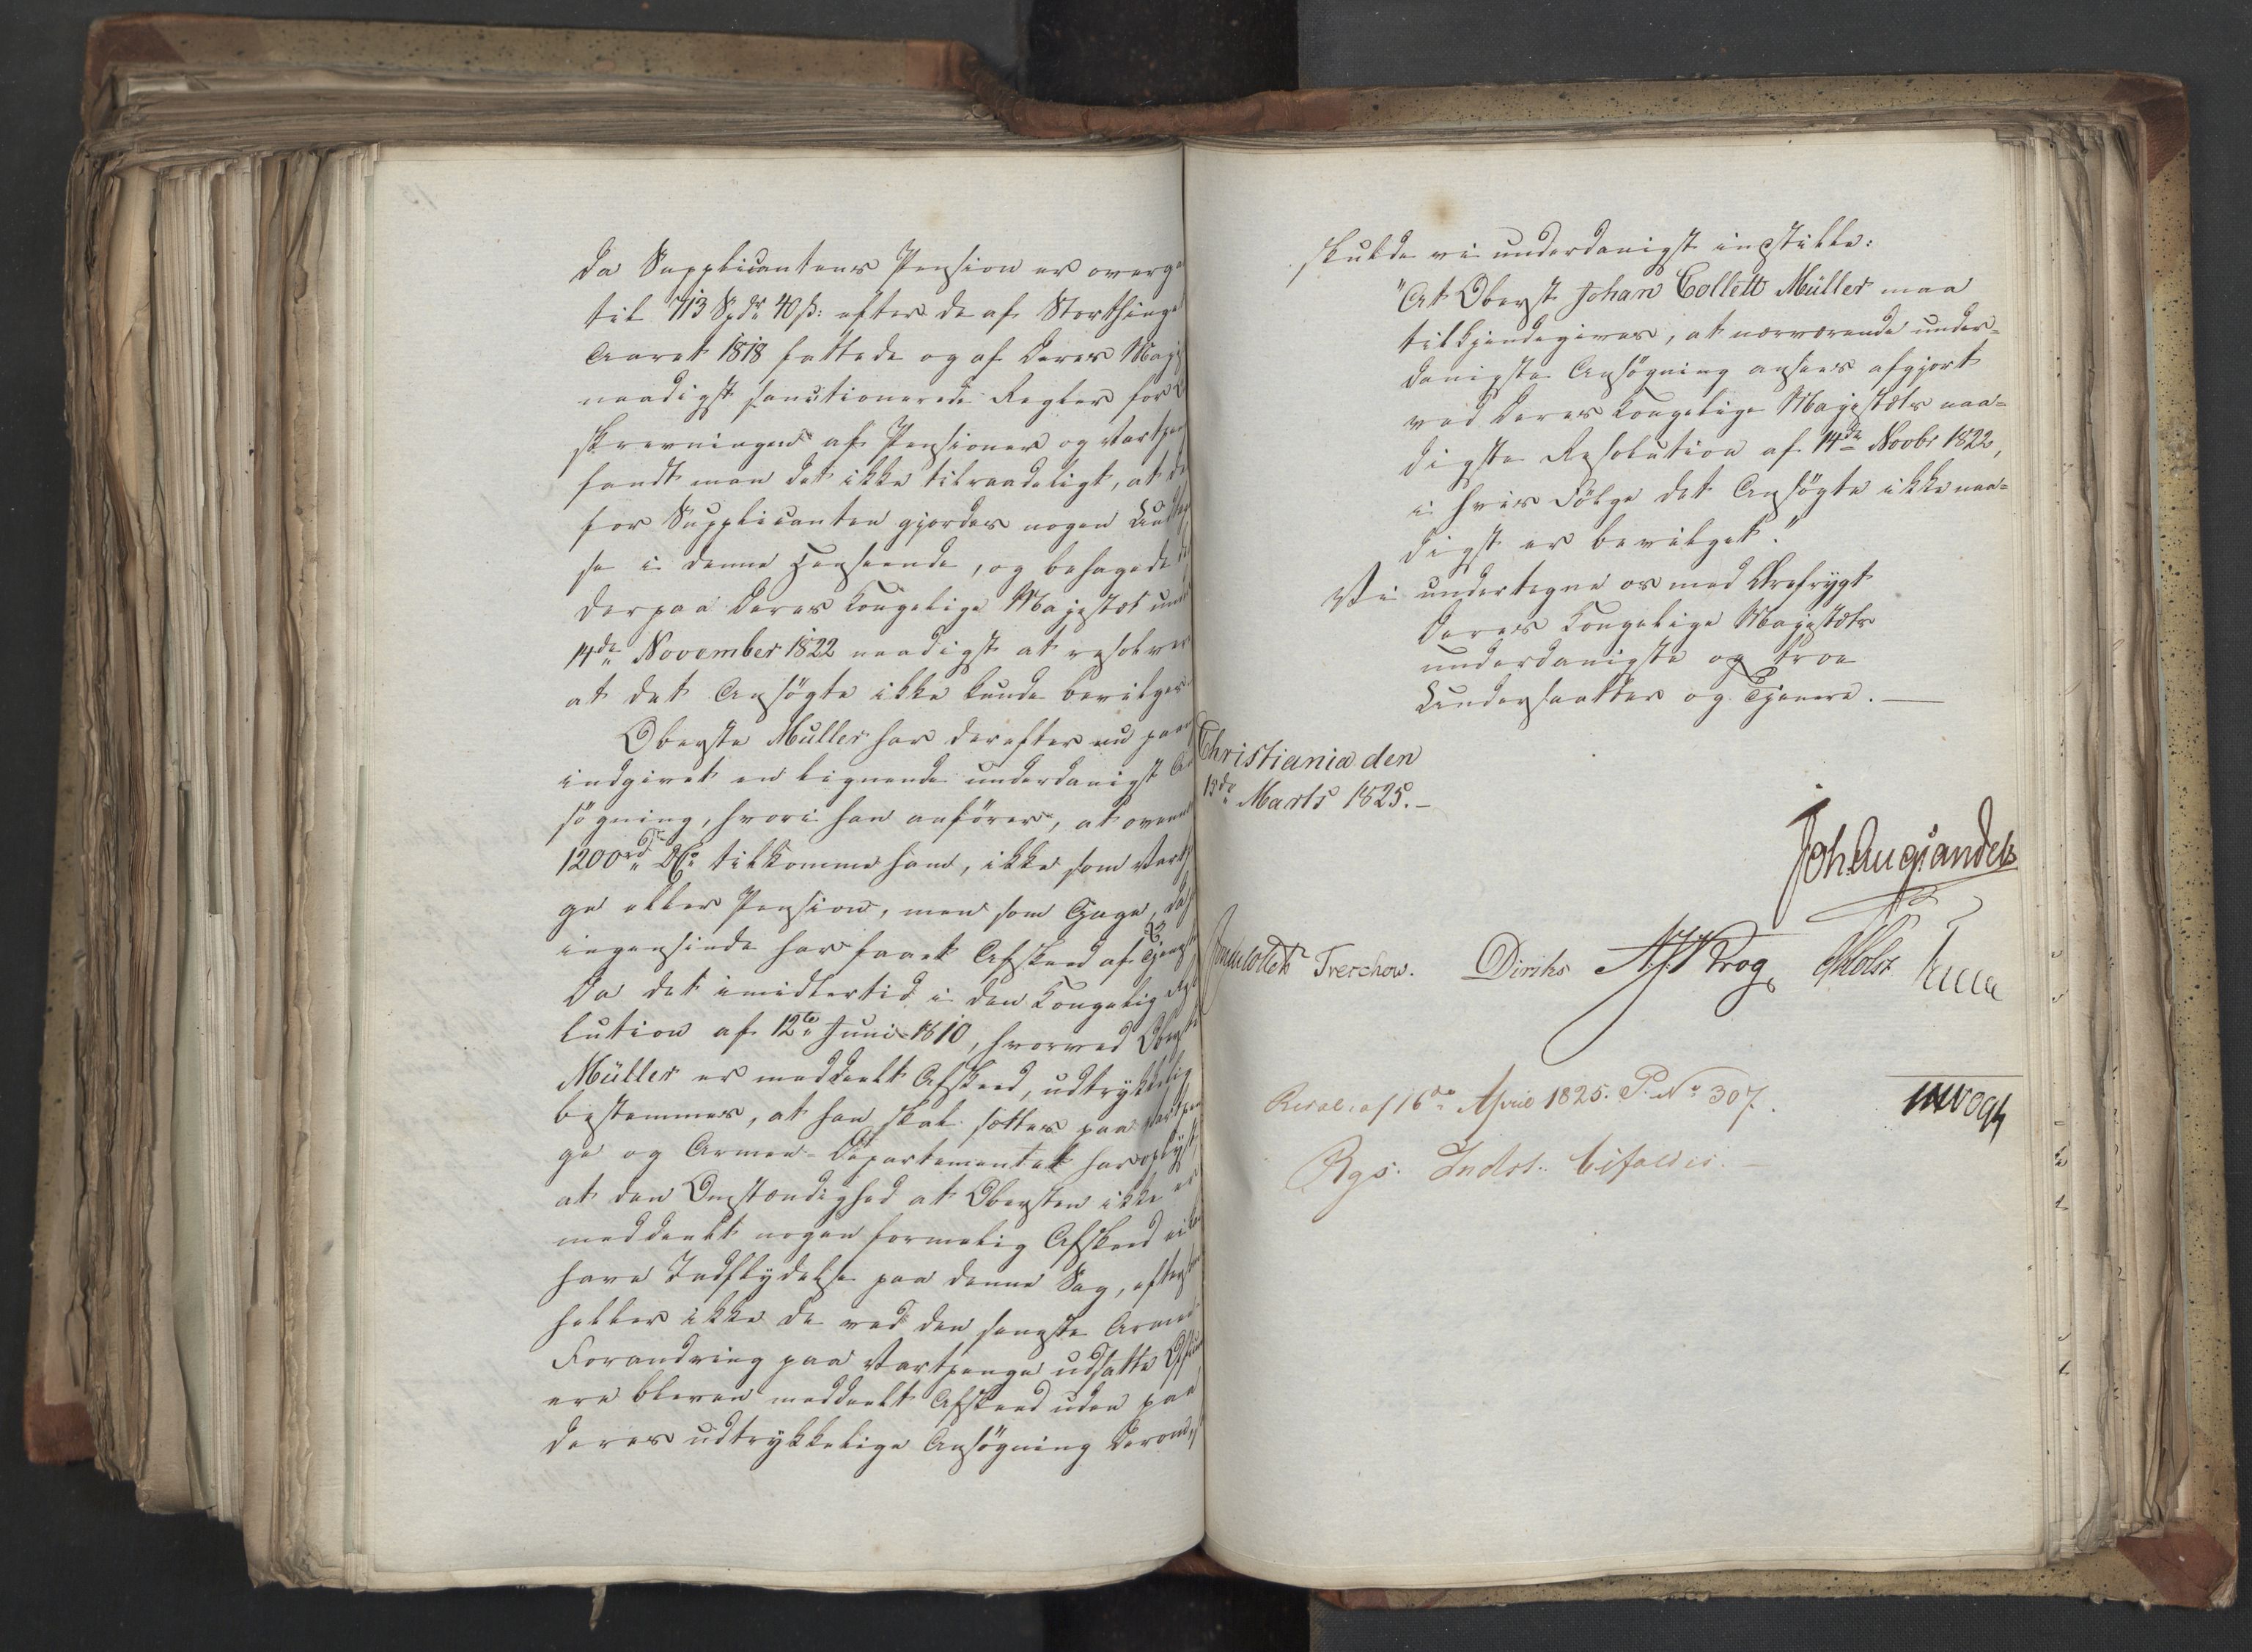 Da Supplicantens Pension er overga
til 713 Spdr 40 ß: efter de af Storthinge
Aaret 1818 fattede og af Deres Maj
naadigst sanctionerede Regler for
skrevningen af Pensioner og Vartpen
fandt man det ikke tilraadeligt, at
for Supplicanten gjordes nogen Und
se i denne Henseende, og behagede
derpaa Deres Kongelige Majestæt und
14de November 1822 naadigst at resolvere
at det Ansøgte ikke kunde bevilges
Oberste Müller har derefter nu paa
indgivet en lignende underdanigst An
søgning, hvori han anfører, at oven
1200 rd tilkomme ham, ikke som Vart
ge eller Pension, men som Gage, da
ingensinde har faaet Afskeed af Tjenest
Da det imidlertid i den Kongelig Reso
lution af 12te Juni 1810, hvorved Oberste
Müller er meddeelt Afskeed, udtrykkelig
bestemmes, at han skal sættes paa Vartpen
ge og Armee-Departementet har oplyst,
at den Omstændighed at Obersten ikke er
meddeelt nogen formelig Afskeed ei kan
have Indflydelse paa denne Sag, efter
heller ikke de ved den seneste Armee
Forandring paa Vartpenge udsatte Offi
ere bleven meddeelt Afskeed uden paa
deres udtrykkelige Ansøgning derom,
skulde vi underdanigst indstille:
"At Oberst Johan Collett Müller maa
tilkjendegives, at nærværende under=
danigste Ansøgning ansees afgjort
ved Deres Kongelige Majestæts naa=
digste Resolution af 14de Novbr 1822,
i hvis Følge det Ansøgte ikke naa=
digst er bevilget."
Vi undertegne os med Ærefrygt
Deres Kongelige Majestæts
underdanigste og troe
Undersaatter og Tjenere. —
Christiania den
Marts 1825. –
Joh Aug Sandels
Jonas Collett Treschow. Diriks Krog Holst
Resol: af 16de April 1825. P. No 307.
Vogt
Rgs. Indst. bifaldes. –